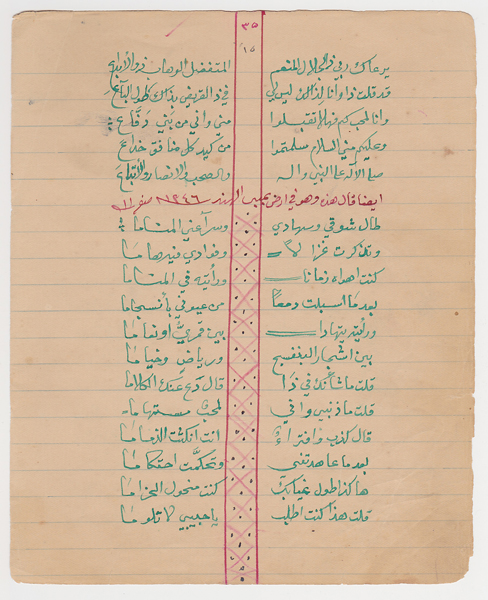 ٣٥
١٥
يرعاك ربي ذو الجلال المنعم المتفضل الوهاب ذو الأبداع
قد قلت ذا وأنا لذالك ليس لي في ذا القريض بذاك طول الباع
وانا لمحبكم فهل تقبلوا مني واني من بني دفاع
وعليكم مني السلام سلمتموا من كيد كل منافق خداع
صلا الآله على النبي واله والصحب والانصار والأتباع
ايضا قال هذه وهو في ارض بمبي الهند ١٣٤٦ صفر ١١
طال شوقي وسهادي وسرا عني المناما
وتذكرت غزالا وفوادي فيه هاما
كنت اهداه زمانا ورأيته في المناما
بعد ما اسبلت دمعا من عيوني بأنسجاما
ورأيته يتهادا بين قمري او نعاما
بين اشجار البنفسج ورياض وخياما
قلت ما شأنك في ذا قال دع عنك الكلاما
قلت ما ذنبي وافي لمحب مستهاما
قال كذب وافتراء انت انكثت الذماما
بعد ما عاهدتني وتحكمت احتكاما
هاكذا طول غيابك كنت منحول الحزاما
قلت هذا كنت اطلب يا حبيبي لا تلوما